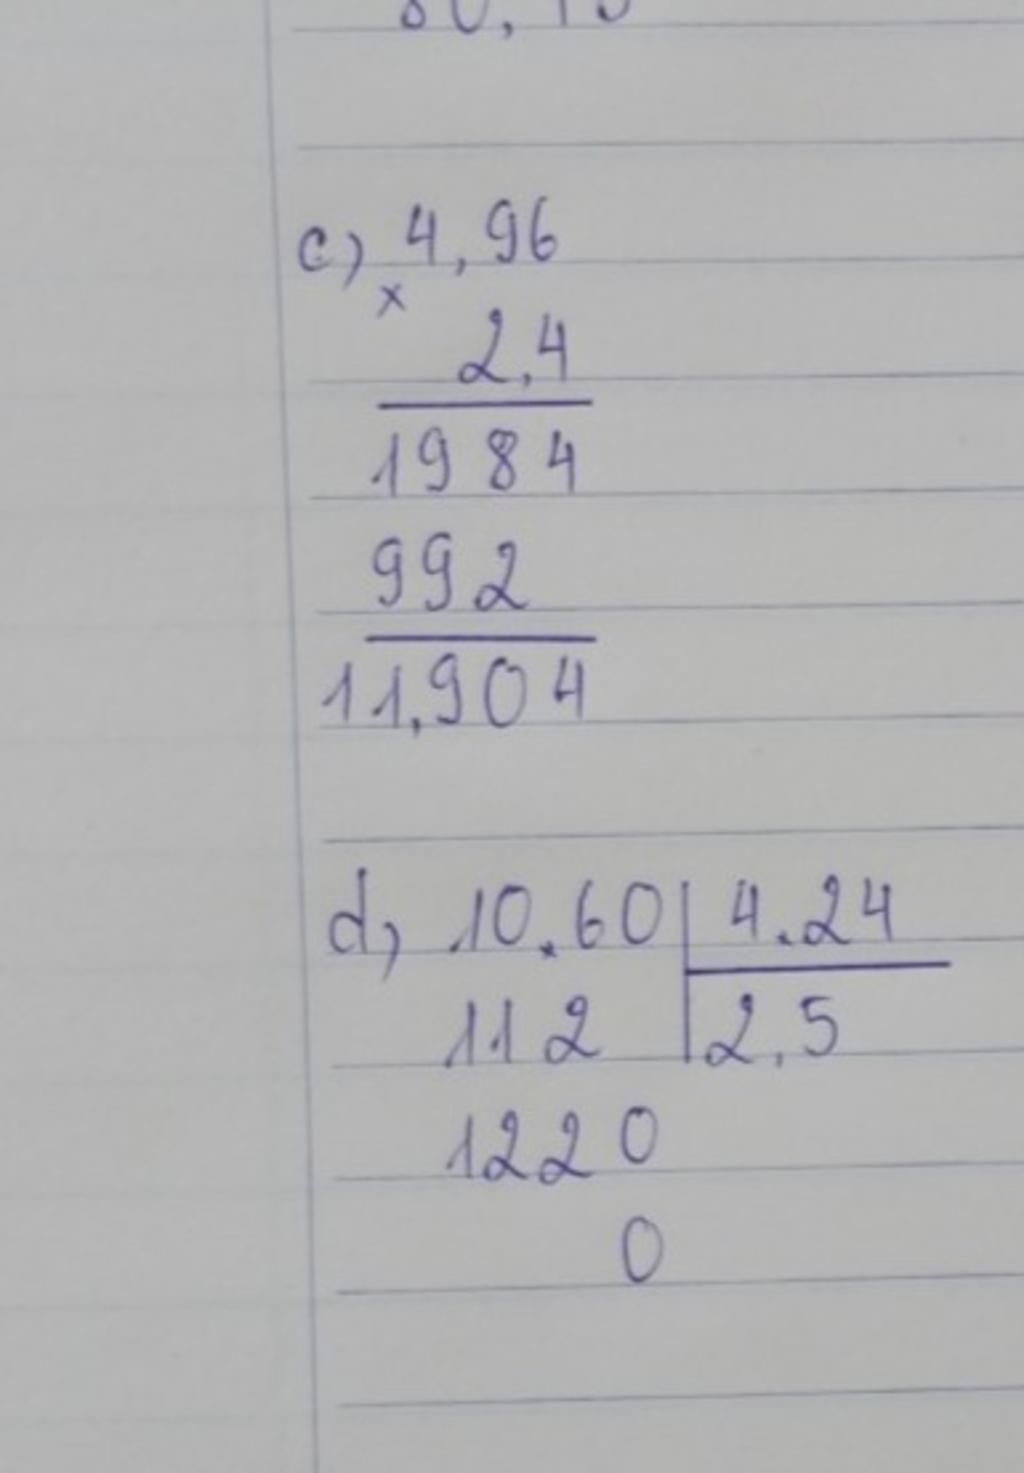 c) 4,96
x
2,4
1984
992
11,904
d, 10.60 | 4.24
112 | 2,5
1220
0